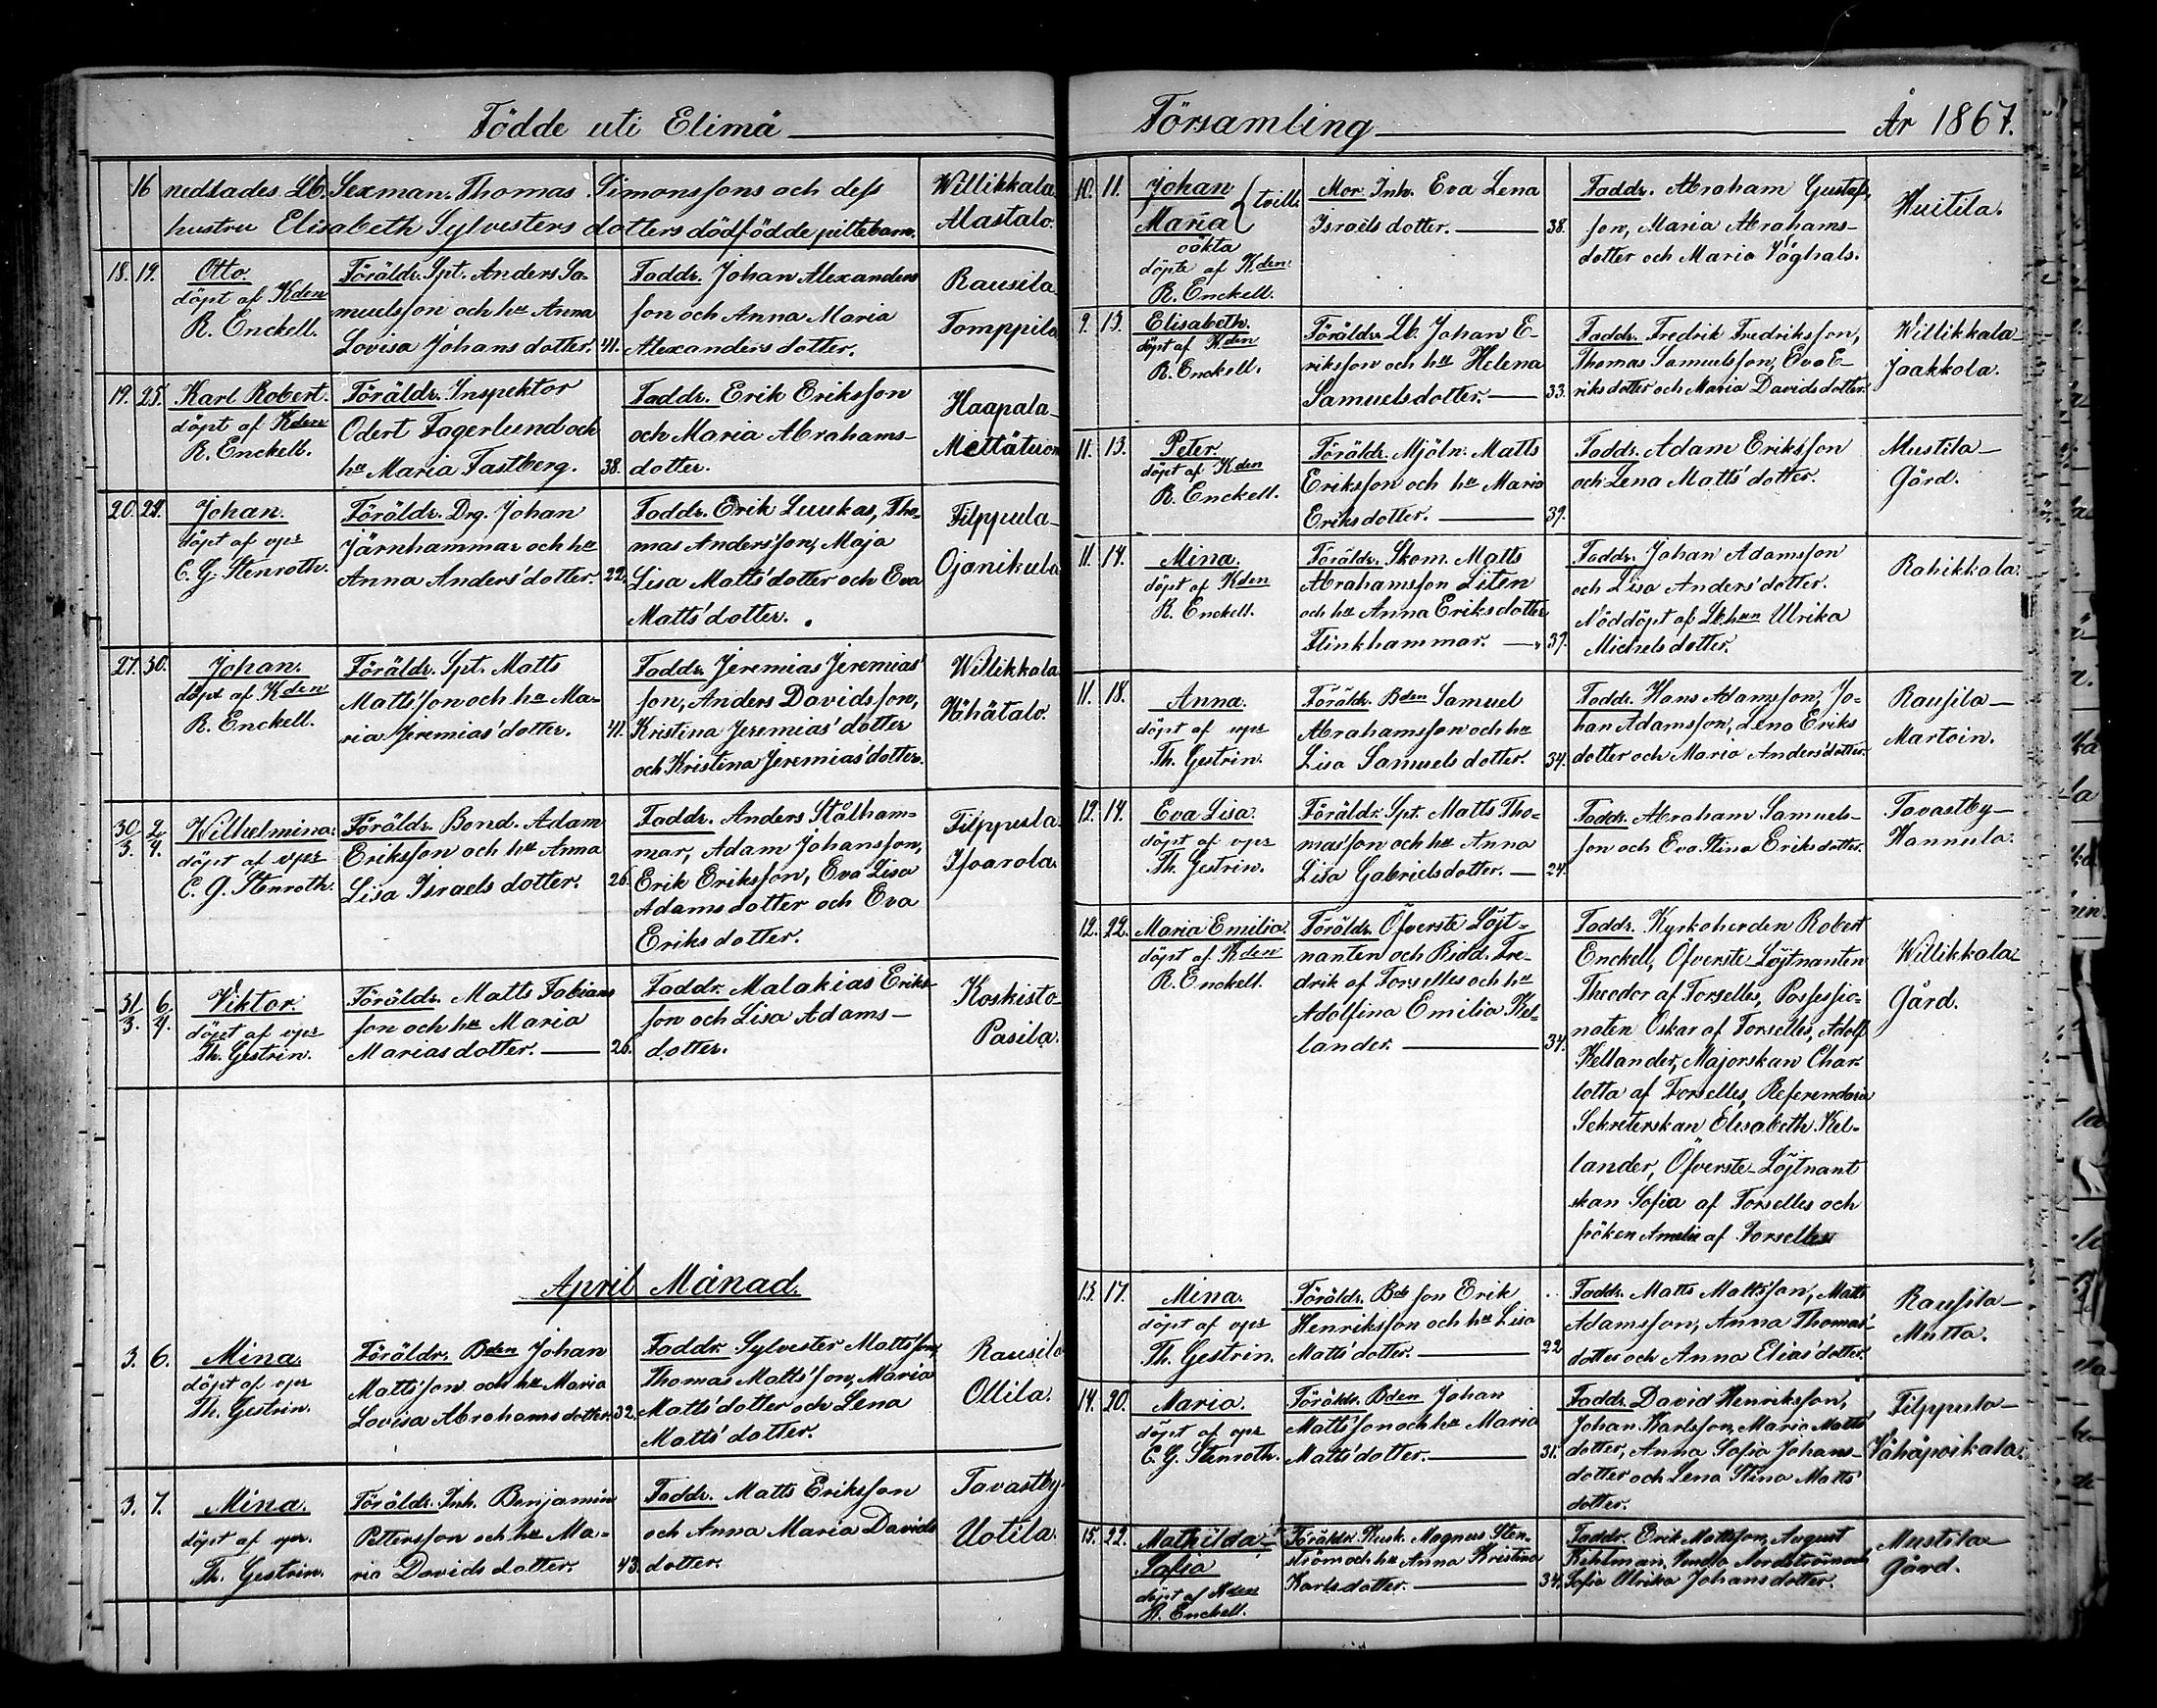 Födde uti Elimä
16 nedsades Lb. Sexman. Thomas Simonssons och dess Willikkala
hustru Elisabeth Sylvesters dotters dödfödde piltebarn. Alastalo.
18. 19. Otto. Föräldr. Spt. Anders Sa- Faddr. Johan Alexanders Rausila
döpt af Kden muelsson och hu Anna son och Anna Maria Tomppila
R. Enckell. Lovisa Johans dotter. 41. Alexanders dotter.
19. 25. Karl Robert. Föräldr. Inspektor Faddr. Erik Eriksson Haapala-
döpt af Kden Odert Fagerlund och och Maria Abrahams- Mettätuon
R. Enckell. hu Maria Fastberg. 38. dotter.
20. 24. Johan. Föräldr. Drg. Johan Faddr. Erik Luukas, Tho- Filppula-
döpt af vpr Järnhammar och hu mas Andersson, Maja Ojanikula
C. G. Stenroth. Anna Anders'dotter. 22. Lisa Matts'dotter och Eva
Matts'dotter.
27. 30. Johan. Föräldr. Spt. Matts Faddr. Jeremias Jeremias' Willikkala
döpt af Kden Matts'son och hu Ma- son, Anders Davidsson, Wähätalo.
R. Enckell. ria Jeremias'dotter. 41. Kristina Jeremias'dotter
och Kristina Jeremias'dotter.
30/3. 2/4. Wilhelmina. Föräldr. Bond. Adam Faddr. Anders Stålham- Filppula
döpt af vpr Eriksson och hu Anna mar, Adam Johansson, Ifvarola.
C. G. Stenroth. Lisa Israels dotter. 26. Erik Eriksson, Eva Lisa
Adams dotter och Eva
Eriks dotter.
31/3. 6/4. Viktor. Föräldr. Matts Fabians Faddr. Malakias Eriks- Koskisto-
döpt af vpr son och hu Maria son och Lisa Adams- Pasila.
Th. Gestrin. Marias dotter. 26. dotter.
April Månad.
3. 6. Mina. Föräldr. Bden Johan Faddr. Sylvester Matts'son, Rausila
döpt af vpr Matts'son och hu Maria Thomas Matts'son, Maria Ollila.
Th. Gestrin. Lovisa Abrahams dotter. 32. Matts'dotter och Lena
Matts'dotter.
3. 7. Mina. Föräldr. Inh. Benjamin Faddr. Matts Eriksson Tavastby-
döpt af vpr. Pettersson och hu Ma- och Anna Maria Davids Uotila.
Th. Gestrin. ria Davids dotter. 43. dotter.
Församling År 1867.
10. 11. Johan { tvill. Mor. Inh. Eva Lena Faddr. Abraham Gustafs Huitila.
Maria Israels dotter. 38. son, Maria Abrahams-
oäkta dotter och Maria Våghals.
döpte af Kden
R. Enckell.
9. 13. Elisabeth. Föräldr. Lb. Johan E- Faddr. Fredrik Fredriksson, Willikkala-
döpt af Kden riksson och hu Helena Thomas Samuelsson, Eva E- Jaakkola.
R. Enckell. Samuelsdotter. 33. riksdotter och Maria Davidsdotter.
11. 13. Peter. Föräldr. Mjöln. Matts Faddr. Adam Eriksson Mustila-
döpt af Kden Eriksson och hu Maria och Lena Matts'dotter. Gård.
R. Enckell. Eriks dotter. 39.
11. 14. Mina. Föräldr. Skom. Matts Faddr. Johan Adamsson Rahikkala.
döpt af Kden Abrahamsson Liten och Lisa Anders'dotter.
R. Enckell. och hu Anna Eriksdotter Nöddöpt af Lb. hun Ulrika
Flinkhammar. 37. Michels dotter.
11. 18. Anna. Föräldr. Bden Samuel Faddr. Hans Adamsson, Jo- Rausila-
döpt af vpr Abrahamsson och hu han Adamsson, Lena Eriks Martoin.
Th. Gestrin. Lisa Samuels dotter. 34. dotter och Maria Anders'dotter.
12. 14. Eva Lisa. Föräldr. Spt. Matts Tho- Faddr. Abraham Samuels- Tavastby-
döpt af vpr masson och hu Anna son och Eva Stina Eriksdotter. Hannula.
Th. Gestrin. Lisa Gabrielsdotter. 24.
12. 22. Maria Emilia. Föräldr. Öfverste Löjt- Faddr. Kyrkoherden Robert Willikkala
döpt af Kden nanten och Ridd. Fre- Enckell, Öfverste-Löjtnanten Gård.
R. Enckell. drik af Forselles och hu Theodor af Forselles, Possessio-
Adolfina Emilia Kel- naten Oskar af Forselles, Adolf
lander. 34. Kellander, Majorskan Char-
lotta af Forselles, Referendarie
Sekreterskan Elisabeth Kel-
lander, Öfverste-Löjtnant
skan Sofia af Forselles och
fröken Amelie af Forselles
13. 17. Mina. Föräldr. Bde son Erik Faddr. Matts Matts'son, Matts Rausila-
döpt af vpr Henriksson och hu Lisa Adamsson, Anna Thomas'- Mutta.
Th. Gestrin. Matts'dotter. 22 dotter och Anna Elias'dotter.
14. 20. Maria. Föräldr. Bden Johan Faddr. David Henriksson, Filppula-
döpt af vpr Matts'son och hu Maria Johan Karlsson, Maria Matts' Vähäpoikala.
C. G. Stenroth. Matts'dotter. 31. dotter, Anna Sofia Johans-
dotter och Lena Stina Matts'
dotter.
15. 22. Mathilda Föräldr. Kusk. Magnus Sten- Faddr. Erik Mattsson, August Mustila-
Sofia ström och hu Anna Kristina Kihlman, Vendla Nordström och Gård.
döpt af Kden Karls dotter. 34. Sofia Ulrika Johansdotter.
R. Enckell.